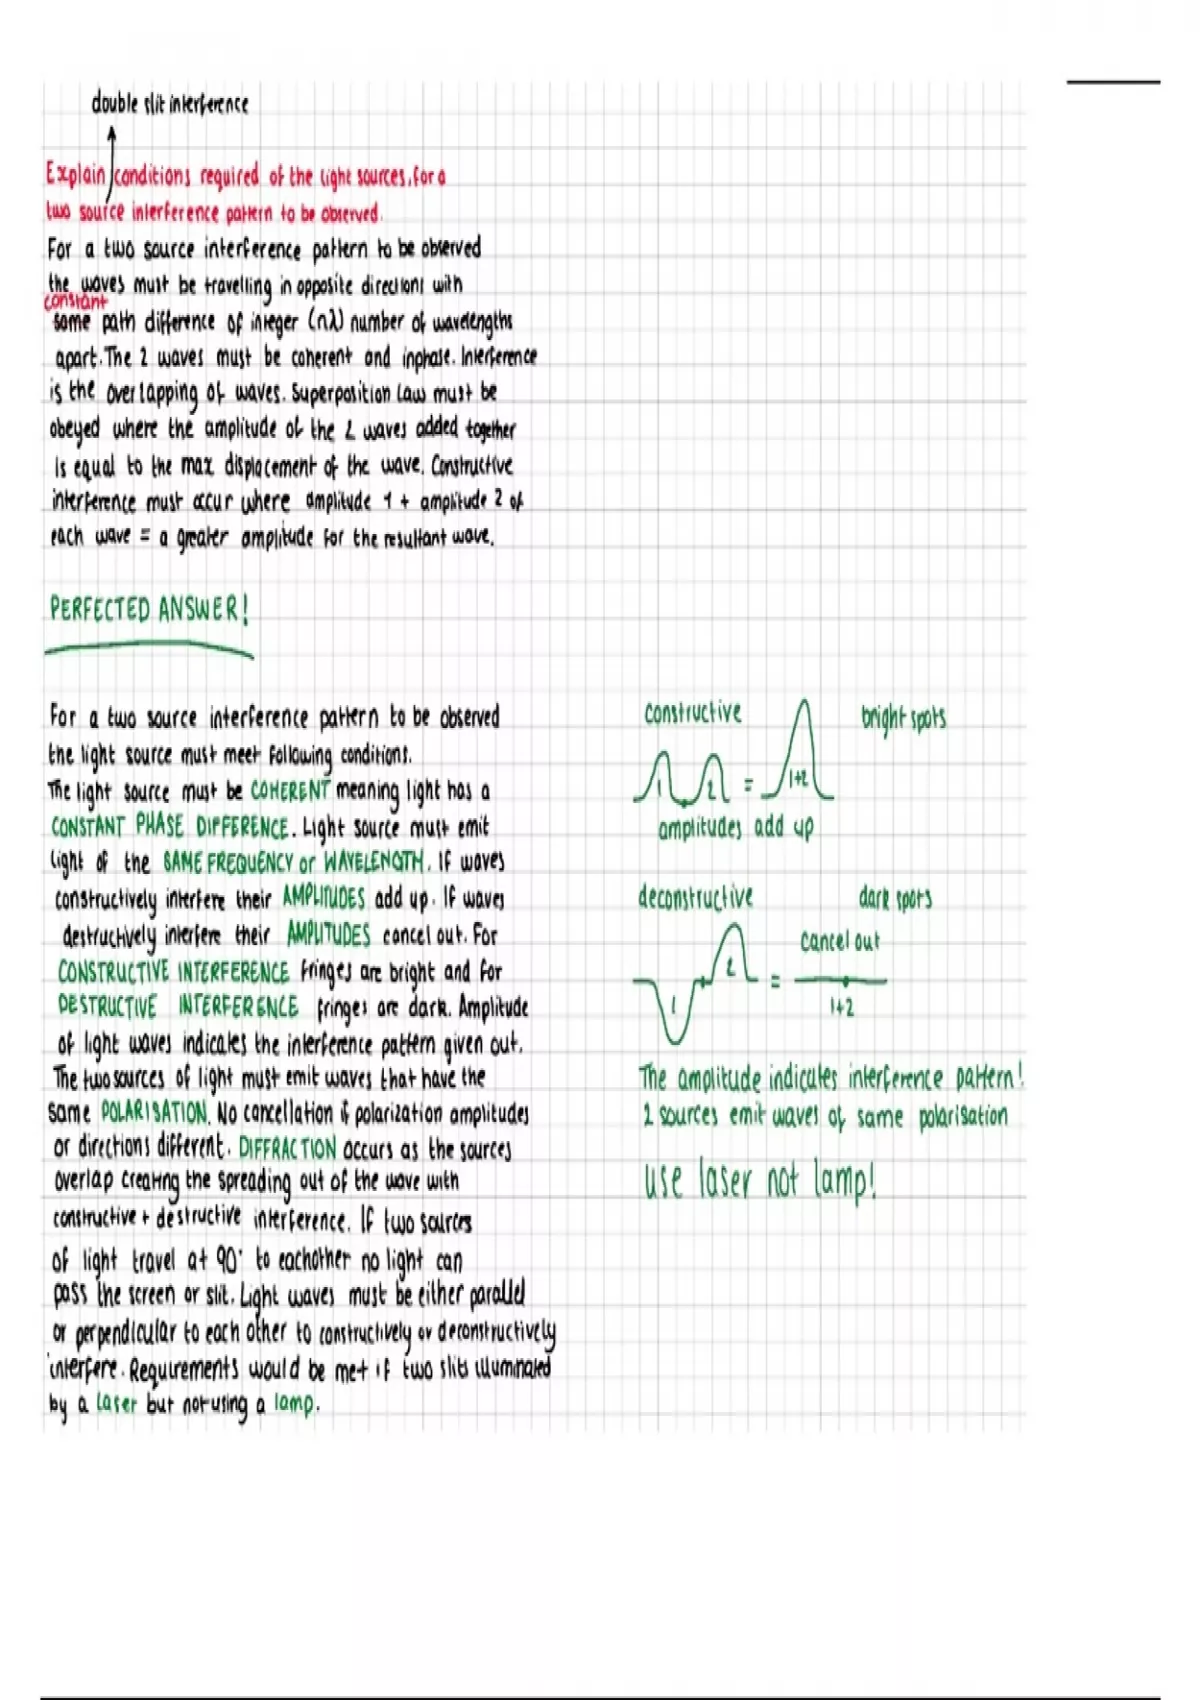 double slit interference
Explain conditions required of the light sources, for a
two source interference pattern to be observed.
For a two source interference pattern to be observed
the waves must be travelling in opposite directions with
constant
same path difference of integer (nλ) number of wavelengths
apart. The 2 waves must be coherent and inphase. Interference
is the overlapping of waves. Superposition law must be
obeyed where the amplitude of the 2 waves added together
is equal to the max displacement of the wave. Constructive
interference must occur where amplitude 1 + amplitude 2 of
each wave = a greater amplitude for the resultant wave.
PERFECTED ANSWER!
For a two source interference pattern to be observed
the light source must meet following conditions.
The light source must be COHERENT meaning light has a
CONSTANT PHASE DIFFERENCE. Light source must emit
light of the SAME FREQUENCY or WAVELENGTH. If waves
constructively interfere their AMPLITUDES add up. If waves
destructively interfere their AMPLITUDES cancel out. For
CONSTRUCTIVE INTERFERENCE fringes are bright and for
DESTRUCTIVE INTERFERENCE fringes are dark. Amplitude
of light waves indicates the interference pattern given out.
The two sources of light must emit waves that have the
same POLARISATION. No cancellation if polarization amplitudes
or directions different. DIFFRACTION occurs as the sources
overlap creating the spreading out of the wave with
constructive + destructive interference. If two sources
of light travel at 90° to eachother no light can
pass the screen or slit. Light waves must be either parallel
or perpendicular to each other to constructively or deconstructively
interfere. Requirements would be met if two slits illuminated
by a laser but not using a lamp.
constructive bright spots
1 2 = 1+2
amplitudes add up
deconstructive dark spots
cancel out
1 2 = 1+2
The amplitude indicates interference pattern!
2 sources emit waves of same polarisation
use laser not lamp!